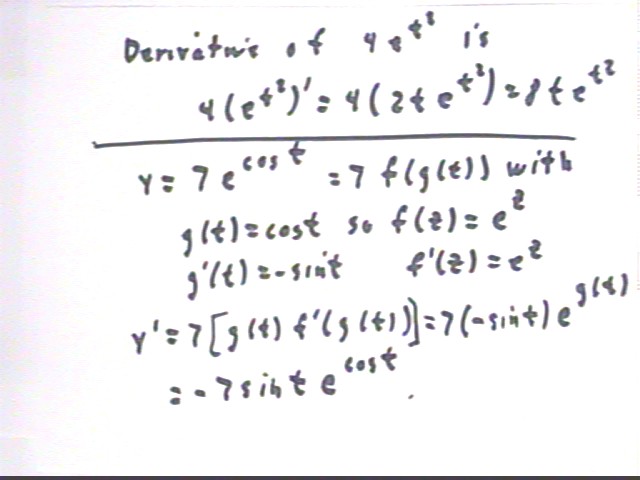 Derivative of 4e^{t²} is
4(e^{t²})' = 4(2t e^{t²}) = 8t e^{t²}
y = 7e^{cos t} = 7 f(g(t)) with
g(t) = cos t so f(z) = e^z
g'(t) = -sin t f'(z) = e^z
y' = 7[g(t) f'(g(t))] = 7(-sin t) e^{g(t)}
= -7 sin t e^{cos t}.